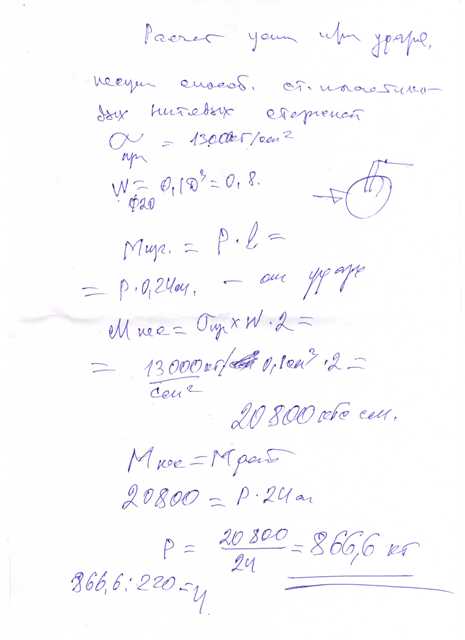 Расчет усил при ударе,
несущ способ. стеклопластико-
вых нитевых стержней
σпр = 13000 кг/см²
W = 0,1D³ = 0,8.
Ф20
Mизг. = P · l =
= P · 0,24м. – от удара
M нес = σпр × W · 2 =
= 13000 кг/см² 0,8см³ · 2 =
20800 кгс см.
M нес = M раб
20800 = P · 24
P = 20 800 / 24 = 866,6 кг
866,6 : 220 = 4